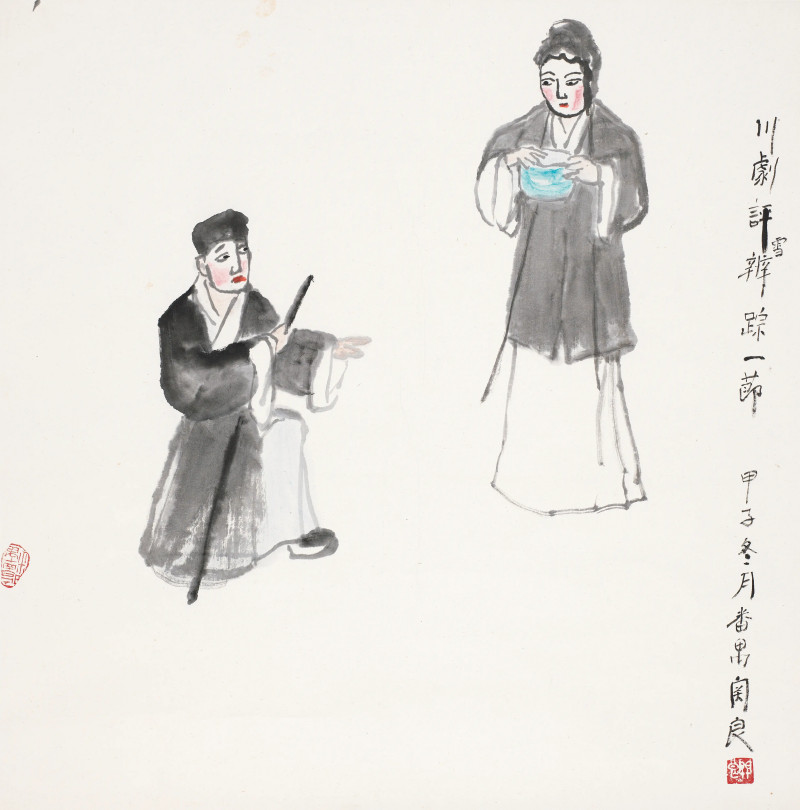 川劇評雪辨踪一節 甲子冬月番禺關良